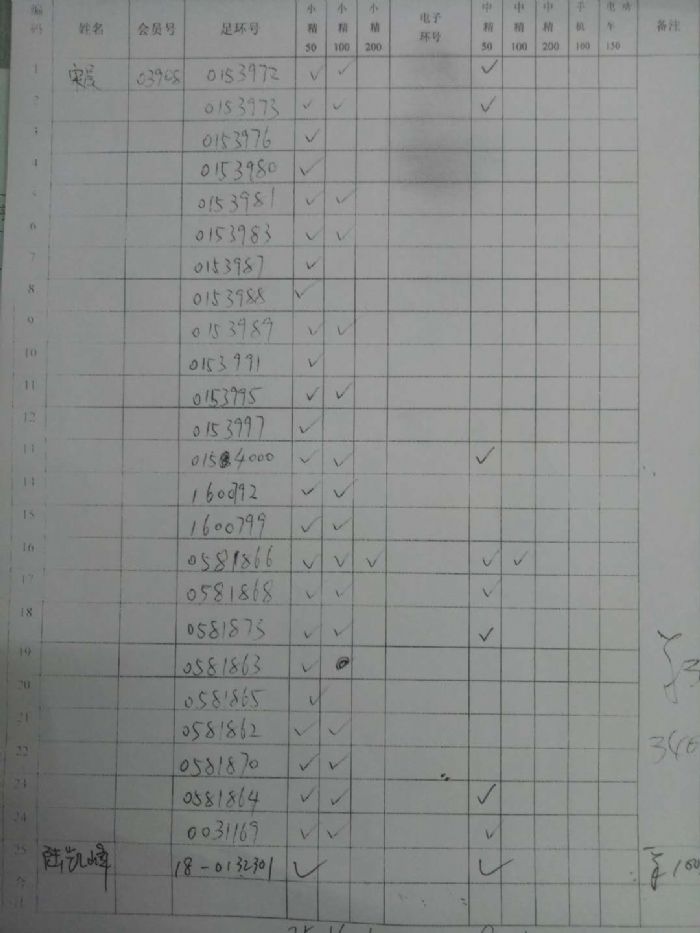 编码 姓名 会员号 足环号 小精50 小精100 小精200 电子环号 中精50 中精100 中精200 手机100 电动车150 备注
1 03908 0153972 ✓ ✓ ✓
2 0153973 ✓ ✓ ✓
3 0153976 ✓
4 0153980 ✓
5 0153981 ✓ ✓
6 0153983 ✓ ✓
7 0153987 ✓
8 0153988 ✓
9 0153989 ✓ ✓
10 0153991 ✓
11 0153995 ✓ ✓
12 0153997 ✓
13 0154000 ✓ ✓ ✓
14 1600792 ✓ ✓
15 1600799 ✓ ✓
16 0581866 ✓ ✓ ✓ ✓ ✓
17 0581868 ✓ ✓ ✓
18 0581873 ✓ ✓ ✓
19 0581863 ✓
20 0581865 ✓
21 0581862 ✓ ✓
22 0581870 ✓ ✓
23 0581864 ✓ ✓ ✓
24 0031169 ✓ ✓ ✓
25 陆凯峰 18-0132301 ✓ ✓